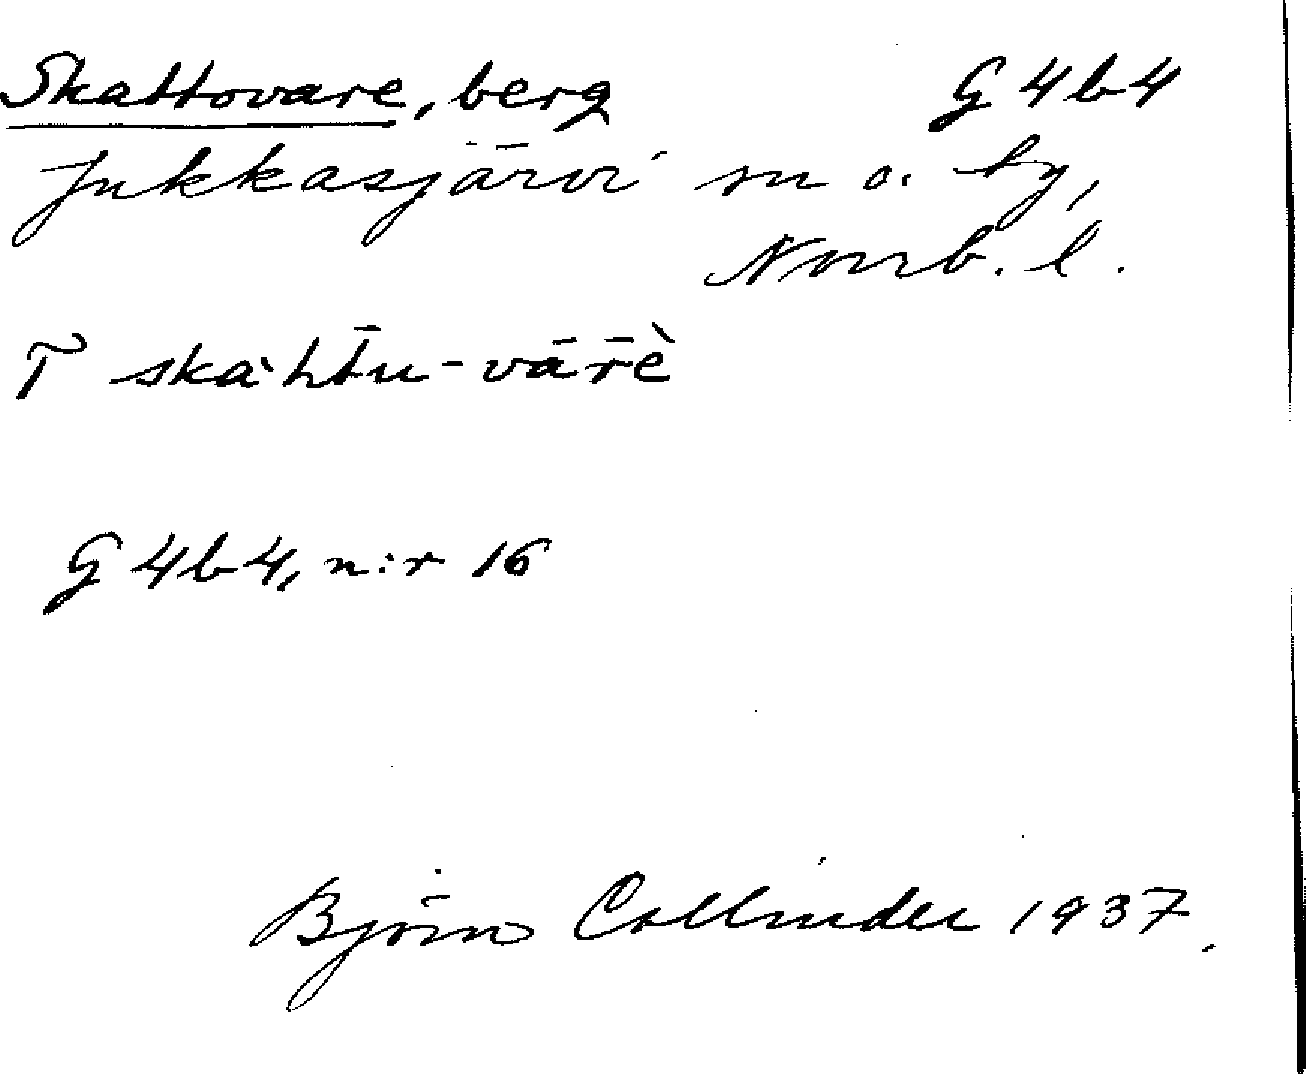 Skattovare, berg G4b4
Jukkasjärvi sn o. by,
Norrb. l.
T skàht̄u-vār̄è
G4b4, n:r 16
Björn Collinder 1937.